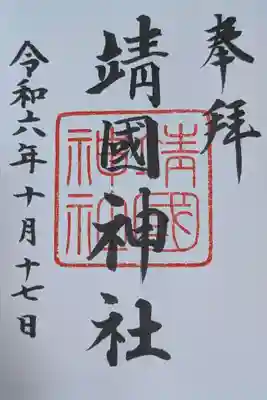 奉拝
靖國神社
靖國
神社
令和六年十月十七日